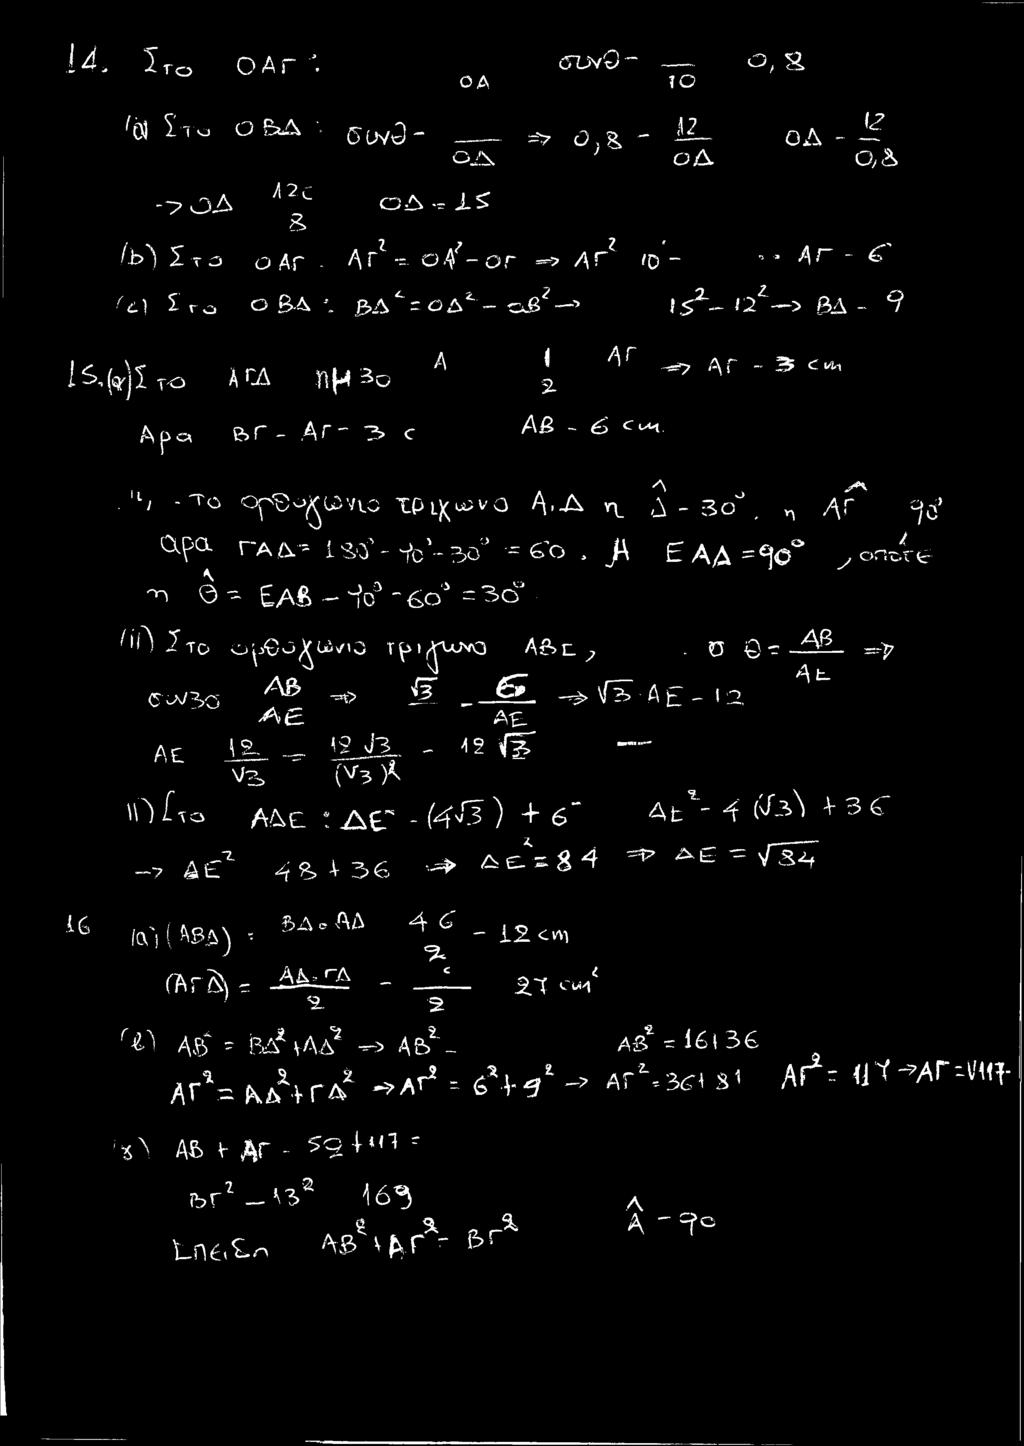 14. Στο ΟΑΓ : ΟΑ συνθ - 10 0,8
(α) Στο ΟΒΔ : συνθ - ΟΔ => 0,8 - 12/ΟΔ ΟΔ - 12/0,8
-> ΟΔ 12 8 ΟΔ = 15
(b) Στο ΟΑΓ . ΑΓ² = ΟΑ² - ΟΓ => ΑΓ² 10 - ΑΓ - 6
(c) Στο ΟΒΔ : ΒΔ² = ΟΔ² - ΟΒ² -> 15² - 12² -> ΒΔ - 9
15. (α) Στο ΑΓΔ ημ 30 Α 1 2 ΑΓ => ΑΓ - 3 cm
Αρα ΒΓ - ΑΓ - 3 c ΑΒ - 6 cm.
- Το ορθογωνιο τριγωνο Α.Δ η Δ̂ - 30°, η ΑΓ̂ 90°
αρα ΓΑΔ = 180° - 90° - 30° = 60. Η ΕΑΔ = 90°, οποτε
η θ̂ = ΕΑΒ - 90° - 60° = 30°
(ii) Στο ορθογωνιο τριγωνο ΑΒΕ, σ θ = ΑΒ/ΑΕ =>
συν30 ΑΒ/ΑΕ => √3 - 6/ΑΕ -> √3 ΑΕ - 12
ΑΕ 12/√3 = 12√3/(√3)² - 12√3
ΙΙ) Στο ΑΔΕ : ΔΕ - (4√3) + 6 ΔΕ² - 4 (√3) + 36
-> ΔΕ² 48 + 36 => ΔΕ² = 84 => ΔΕ = √84
16 (α) (ΑΒΔ) = ΒΔ·ΑΔ 4 6/2 - 12 cm
(ΑΓΔ) = ΑΔ·ΓΔ/2 - 2 27 cm²
ΑΒ² = ΒΔ² + ΑΔ² => ΑΒ² - ΑΒ² = 16 + 36
ΑΓ² = ΑΔ² + ΓΔ² -> ΑΓ² = 6² + 9² -> ΑΓ² = 36 + 81 ΑΓ² = 117 -> ΑΓ = √117
γ) ΑΒ + ΑΓ - 52 + 117 =
ΒΓ² - 13² 169
Επειδη ΑΒ² + ΑΓ² = ΒΓ² Â - 90